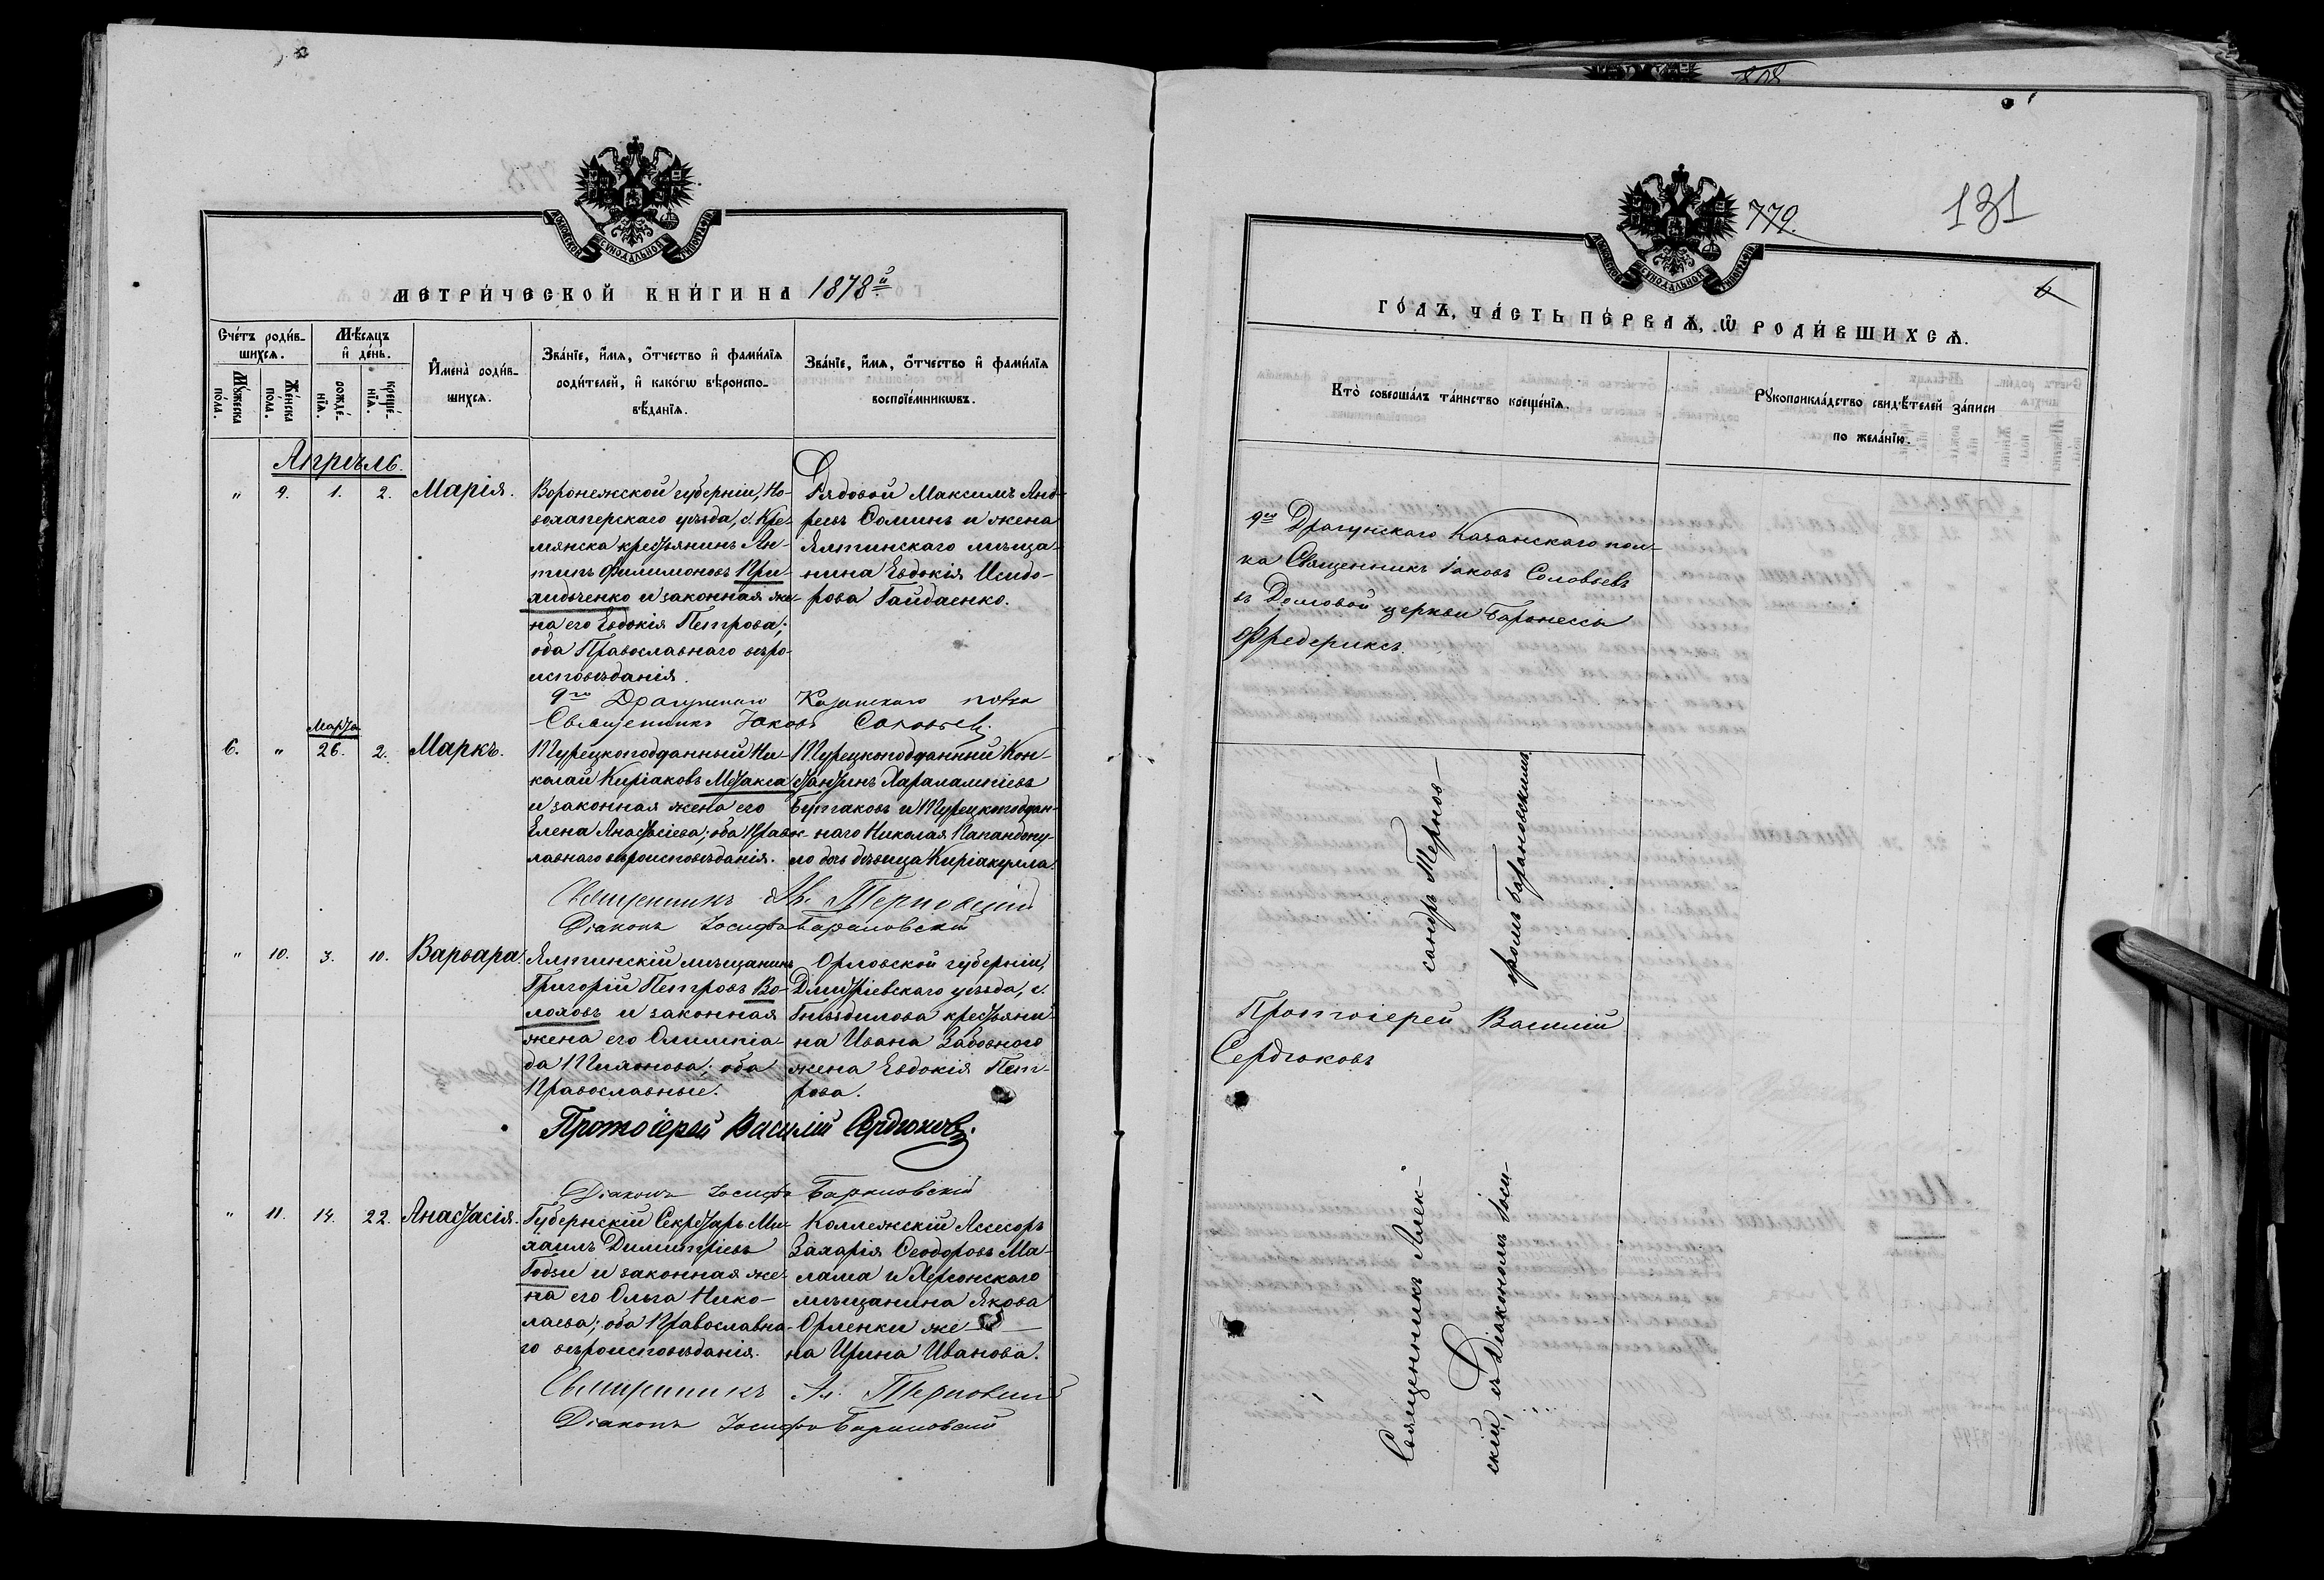 МОСКОВСКОЙ СѴНОДАЛЬНОЙ ТИПОГРАФІИ
МЕТРИ́ЧЕСКОЙ КНИ́ГИ НА 1878й
Сче́тъ роди́в-
шихся.
Мѣ́сяцъ
и҆ де́нь.
Мꙋ́жеска
пола.
Же́нска
пола.
рожде́-
нїѧ.
креще́-
нїѧ.
И҆мена̀ роди́в-
шихся.
Зва́нїе, и҆́мѧ, ѻ҆́тчество и҆ фами́лїѧ
роди́телей, и҆ како́гѡ вѣроиспо-
вѣ́данїѧ.
Зва́нїе, и҆́мѧ, ѻ҆́тчество и҆ фами́лїѧ
воспрїе́мникѡвъ.
Апрѣль.
" 9. 1. 2. Марія.
Воронежской губерніи, Но-
вохаперскаго уѣзда, с. Кре-
мянска крестьянинъ Ан-
типъ Филимоновъ При-
ходьченко и законная же-
на его Евдокія Петрова;
оба Православнаго вѣро-
исповѣданія.
Рядовой Максимъ Анд-
реевъ Ѳоминъ и жена
Ялтинскаго мѣща-
нина Евдокія Исидо-
рова Гайдаенко.
9го Драгунскаго Казанскаго полка
Священникъ Іаковъ Соловьевъ
Марта
6. " 26. 2. Маркъ.
Турецкоподданный Ни-
колай Киріаковъ Метакса
и законная жена его
Елена Анастасіева; оба Правос-
лавнаго вѣроисповѣданія.
Турецкоподданный Кон-
стантинъ Харалампіевъ
Бутаковъ и Турецкоподдан-
наго Николая Папандопу-
ло дочь дѣвица Киріакулла.
Священникъ Ал. Терновскій
Діаконъ Іосифъ Барановскій
" 10. 3. 10. Варвара.
Ялтинскій мѣщанинъ
Григорій Петровъ Во-
лоховъ и законная
жена его Олимпіа-
да Тихонова; оба
Православные.
Орловской губерніи,
Дмитріевскаго уѣзда, с.
Гнѣздилова крестьяни-
на Ивана Забовнаго
жена Евдокія Пет-
рова.
Протоіерей Василій Сердюковъ
Діаконъ Іосифъ Барановскій
" 11. 14. 22. Анастасія.
Губернскій Секретарь Ми-
хаилъ Димитріевъ
Годзи и законная же-
на его Ольга Нико-
лаева; оба Православна-
го вѣроисповѣданія.
Коллежскій Асесоръ
Захарія Ѳеодоровъ Ма-
лама и Херсонскаго
мѣщанина Якова
Орленки же-
на Ирина Иванова.
Священникъ Ал. Терновскій
Діаконъ Іосифъ Барановскій
808
МОСКОВСКОЙ СѴНОДАЛЬНОЙ ТИПОГРАФІИ
779.
131
6
ГО́ДЪ, ЧА́СТЬ ПЕ́РВАѦ, Ѡ҆ РОДИ́ВШИХСѦ.
Кто̀ соверша́лъ та́инство креще́нїѧ.
Рꙋкоприкла́дство свидѣ́телей за́писи
по жела́нїю.
9го Драгунскаго Казанскаго пол-
ка Священникъ Іаковъ Соловьевъ
въ Домовой церкви Баронессы
Фредериксъ.
Протоіерей Василій
Сердюковъ
Священникъ Алек-
сандръ Тернов-
скій, съ Діакономъ Іоси-
фомъ Барановскимъ